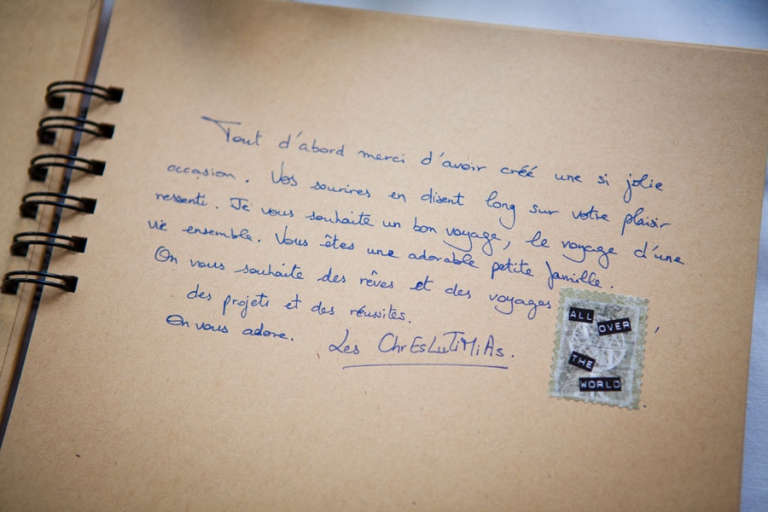 Tout d'abord merci d'avoir créé une si jolie
occasion. Vos sourires en disent long sur votre plaisir
ressenti. Je vous souhaite un bon voyage, le voyage d'une
vie ensemble. Vous êtes une adorable petite famille.
On vous souhaite des rêves et des voyages,
des projets et des réussites.
On vous adore. Les ChrEsLuTiMiAs.
ALL
OVER
THE
WORLD